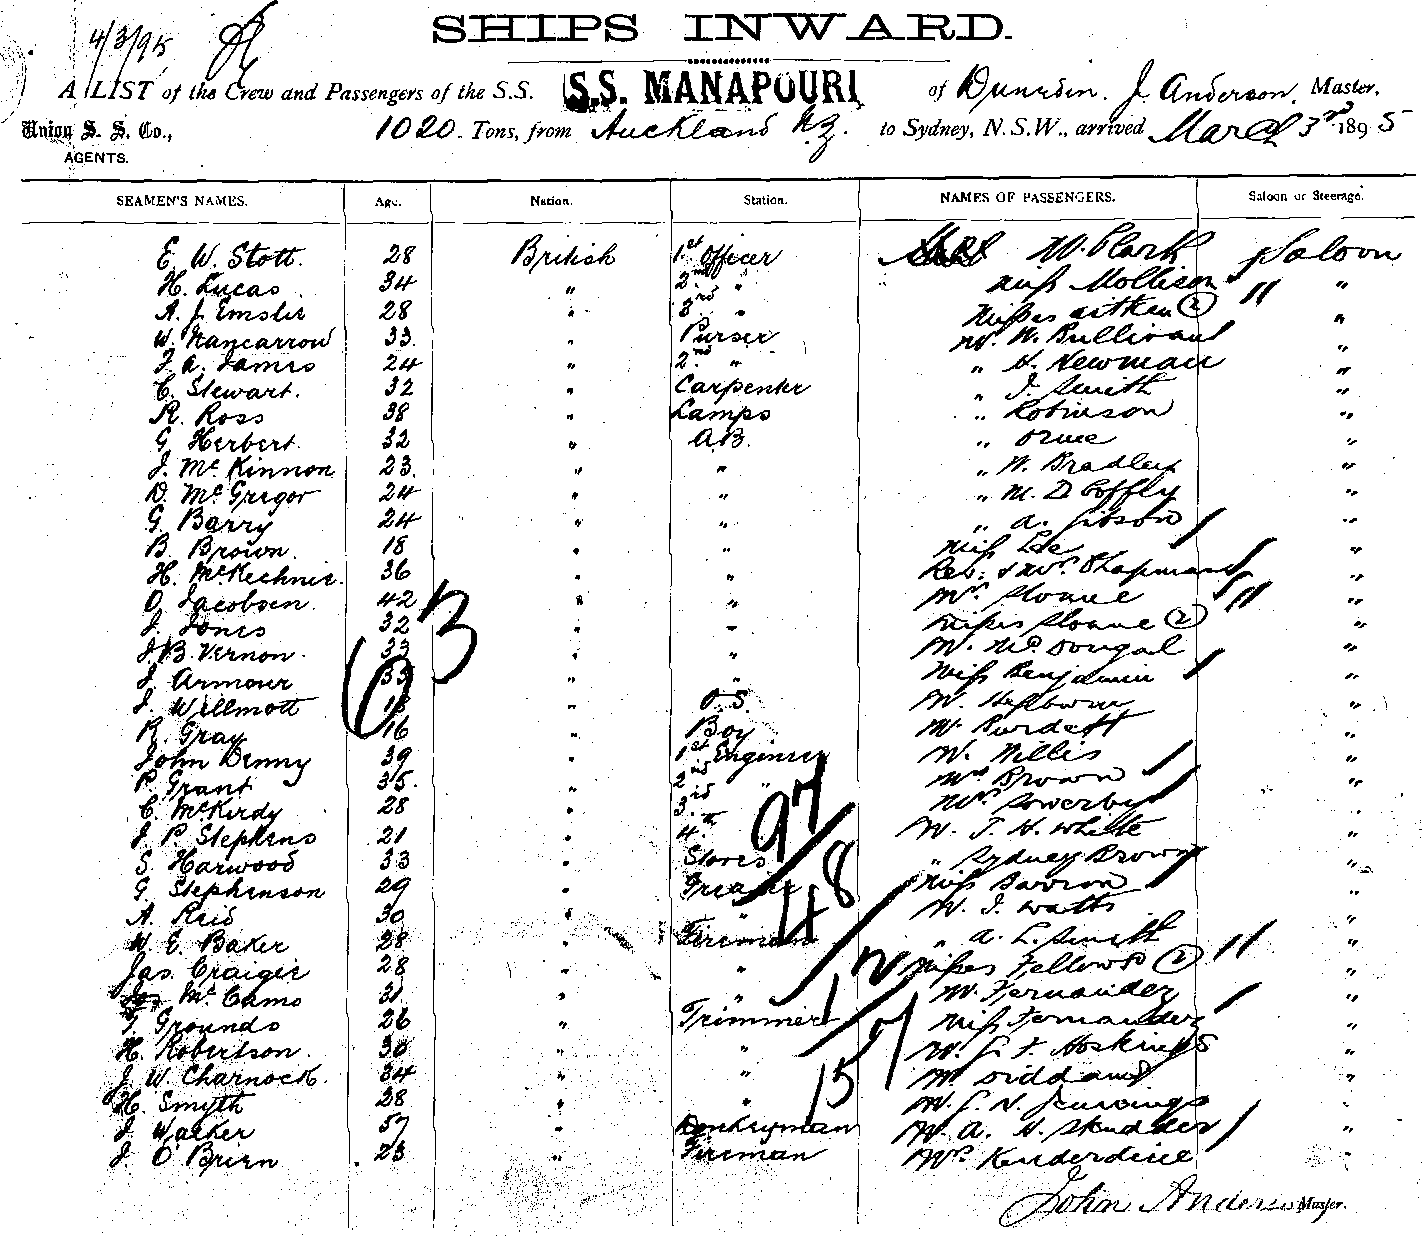 SHIPS INWARD.
4/3/95
A LIST of the Crew and Passengers of the S.S. S.S. MANAPOURI of Dunedin. J. Anderson, Master,
Union S. S. Co., 1020 Tons, from Auckland N.Z. to Sydney, N.S.W., arrived March 3rd 1895
AGENTS.
SEAMEN'S NAMES. Age. Nation. Station. NAMES OF PASSENGERS. Saloon or Steerage.
E. W. Stott. 28 British 1st Officer W. Clark Saloon
H. Lucas 34 " 2nd " Miss Mollison "
A. J. Emslie 28 " 3rd " Misses Aitken (2) "
W. Nancarrow 33. " Purser Mr. W. Bullivant "
J. A. James 24 " 2nd " " H. Newman "
C. Stewart. 32 " Carpenter " J. Smith "
R. Ross 38 " Lamps " Robinson "
G. Herbert. 32 " A.B. " Orme "
J. McKinnon 23. " " " W. Bradley "
D. McGregor 24 " " " M. D. Coffey "
G. Barry 24 " " " A. Gibson "
B. Brown. 18 " " Miss Lee "
H. McKechnie. 36 " " Rev. & Mrs. Chapman "
O. Jacobsen. 42 " " Mr. Sloane "
J. Jones 32 " " Misses Sloane (2) "
J. B. Vernon. 33 " " Mr. McDougal "
J. Armour 33 " " Miss Benjamin "
J. Willmott " O.S. Mr. "
R. Gray 16 " Boy Mr. Burdett "
John Denny 39 " 1st Engineer Mr. Willis "
P. Grant 35. " 2nd " Mrs. Brown "
C. McKirdy 28 " 3rd Mrs. Sowerby "
J. P. Stephens 21 " 4th Mr. T. H. White "
S. Harwood 33 " Stores " Sydney Brown "
G. Stephenson 29 " Greaser Miss Barron "
A. Reid 30 " " Mr. J. Watts "
W. E. Baker 28 " Fireman " A. L. Smith "
Jas. Craigie 28 " " Misses Fellows (2) "
McCamo 31 " " Mr. Fernandez "
T. Grounds 26 " Trimmer Miss Fernandez "
H. Robertson. 30 " " Mr. J. F. Hoskings "
J. W. Charnock. 34 " " Mr. Siddand "
H. Smyth 28 " " Mr. J. N. Jennings "
J. Walker 57 " Donkeyman Mr. A. H. Skudder "
J. O'Brien 23 " Fireman Mrs. Kenderdine "
63
97
48
12
15
John Anderson Master.